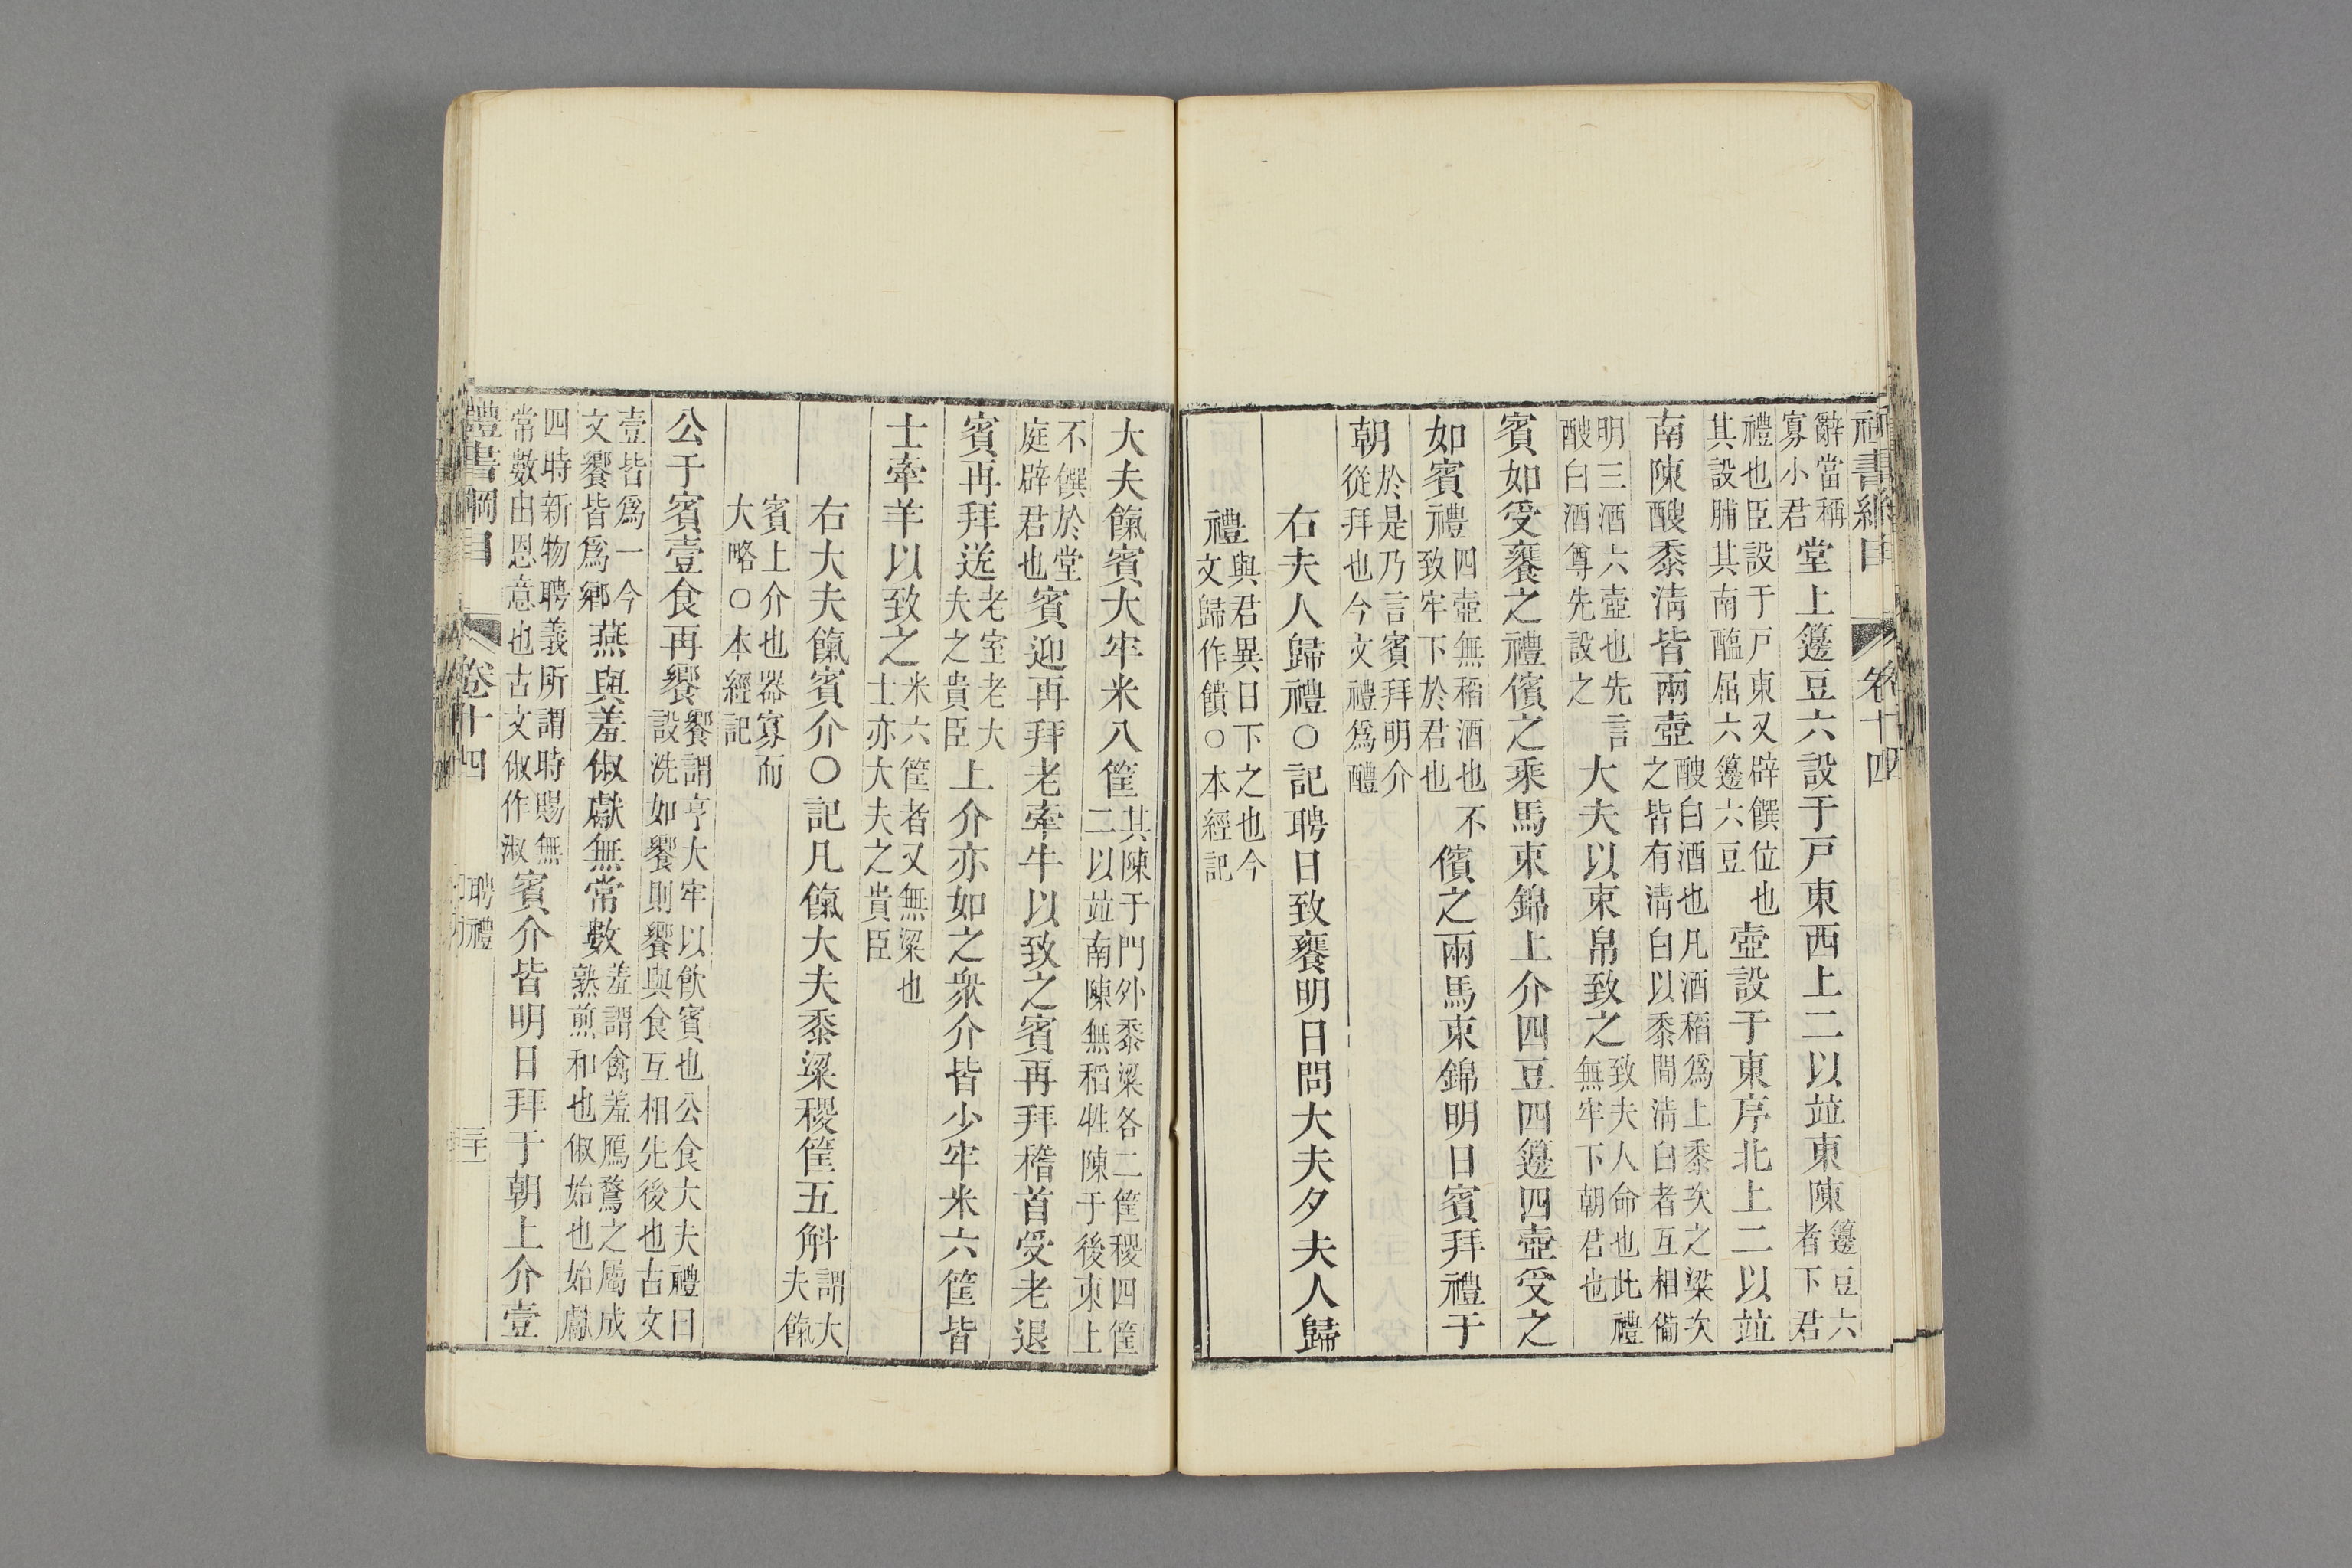 禮書綱目 卷十四
辭當稱寡小君堂上籩豆六設于戸東西上二以竝東陳籩豆六者下君
禮也臣設于戸東又辟饌位也其設脯其南醢屈六籩六豆壺設于東序北上二以竝
南陳醙黍清皆兩壺醙白酒也凡酒稻爲上黍次之粱次之皆有清白以黍間清白者互相備
明三酒六壺也先言醙白酒尊先設之大夫以束帛致之致夫人命也此禮無牢下朝君也
賓如受饔之禮儐之乘馬束錦上介四豆四籩四壺受之
如賓禮四壺無稻酒也不致牢下於君也儐之兩馬束錦明日賓拜禮于
朝於是乃言賓拜明介從拜也今文禮爲醴
右夫人歸禮○記聘日致饔明日問大夫夕夫人歸
禮與君異日下之也今文歸作饋○本經記
大夫餼賓大牢米八筐其陳于門外黍粱各二筐稷四筐二以竝南陳無稻牲陳于後東上
不饌於堂庭辟君也賓迎再拜老牽牛以致之賓再拜稽首受老退
賓再拜送老室老大夫之貴臣上介亦如之衆介皆少牢米六筐皆
士牽羊以致之米六筐者又無粱也士亦大夫之貴臣
右大夫餼賓介○記凡餼大夫黍粱稷筐五斛謂大夫餼
賓上介也器寡而大略○本經記
公于賓壹食再饗饗謂亨大牢以飲賓也公食大夫禮曰設洗如饗則饗與食互相先後也古文
壹皆爲一今文饗皆爲鄉燕與羞俶獻無常數羞謂禽羞鴈鶩之屬成熟煎和也俶始也始獻
四時新物聘義所謂時賜無常數由恩意也古文俶作淑賓介皆明日拜于朝上介壹
禮書綱目 卷十四 聘禮